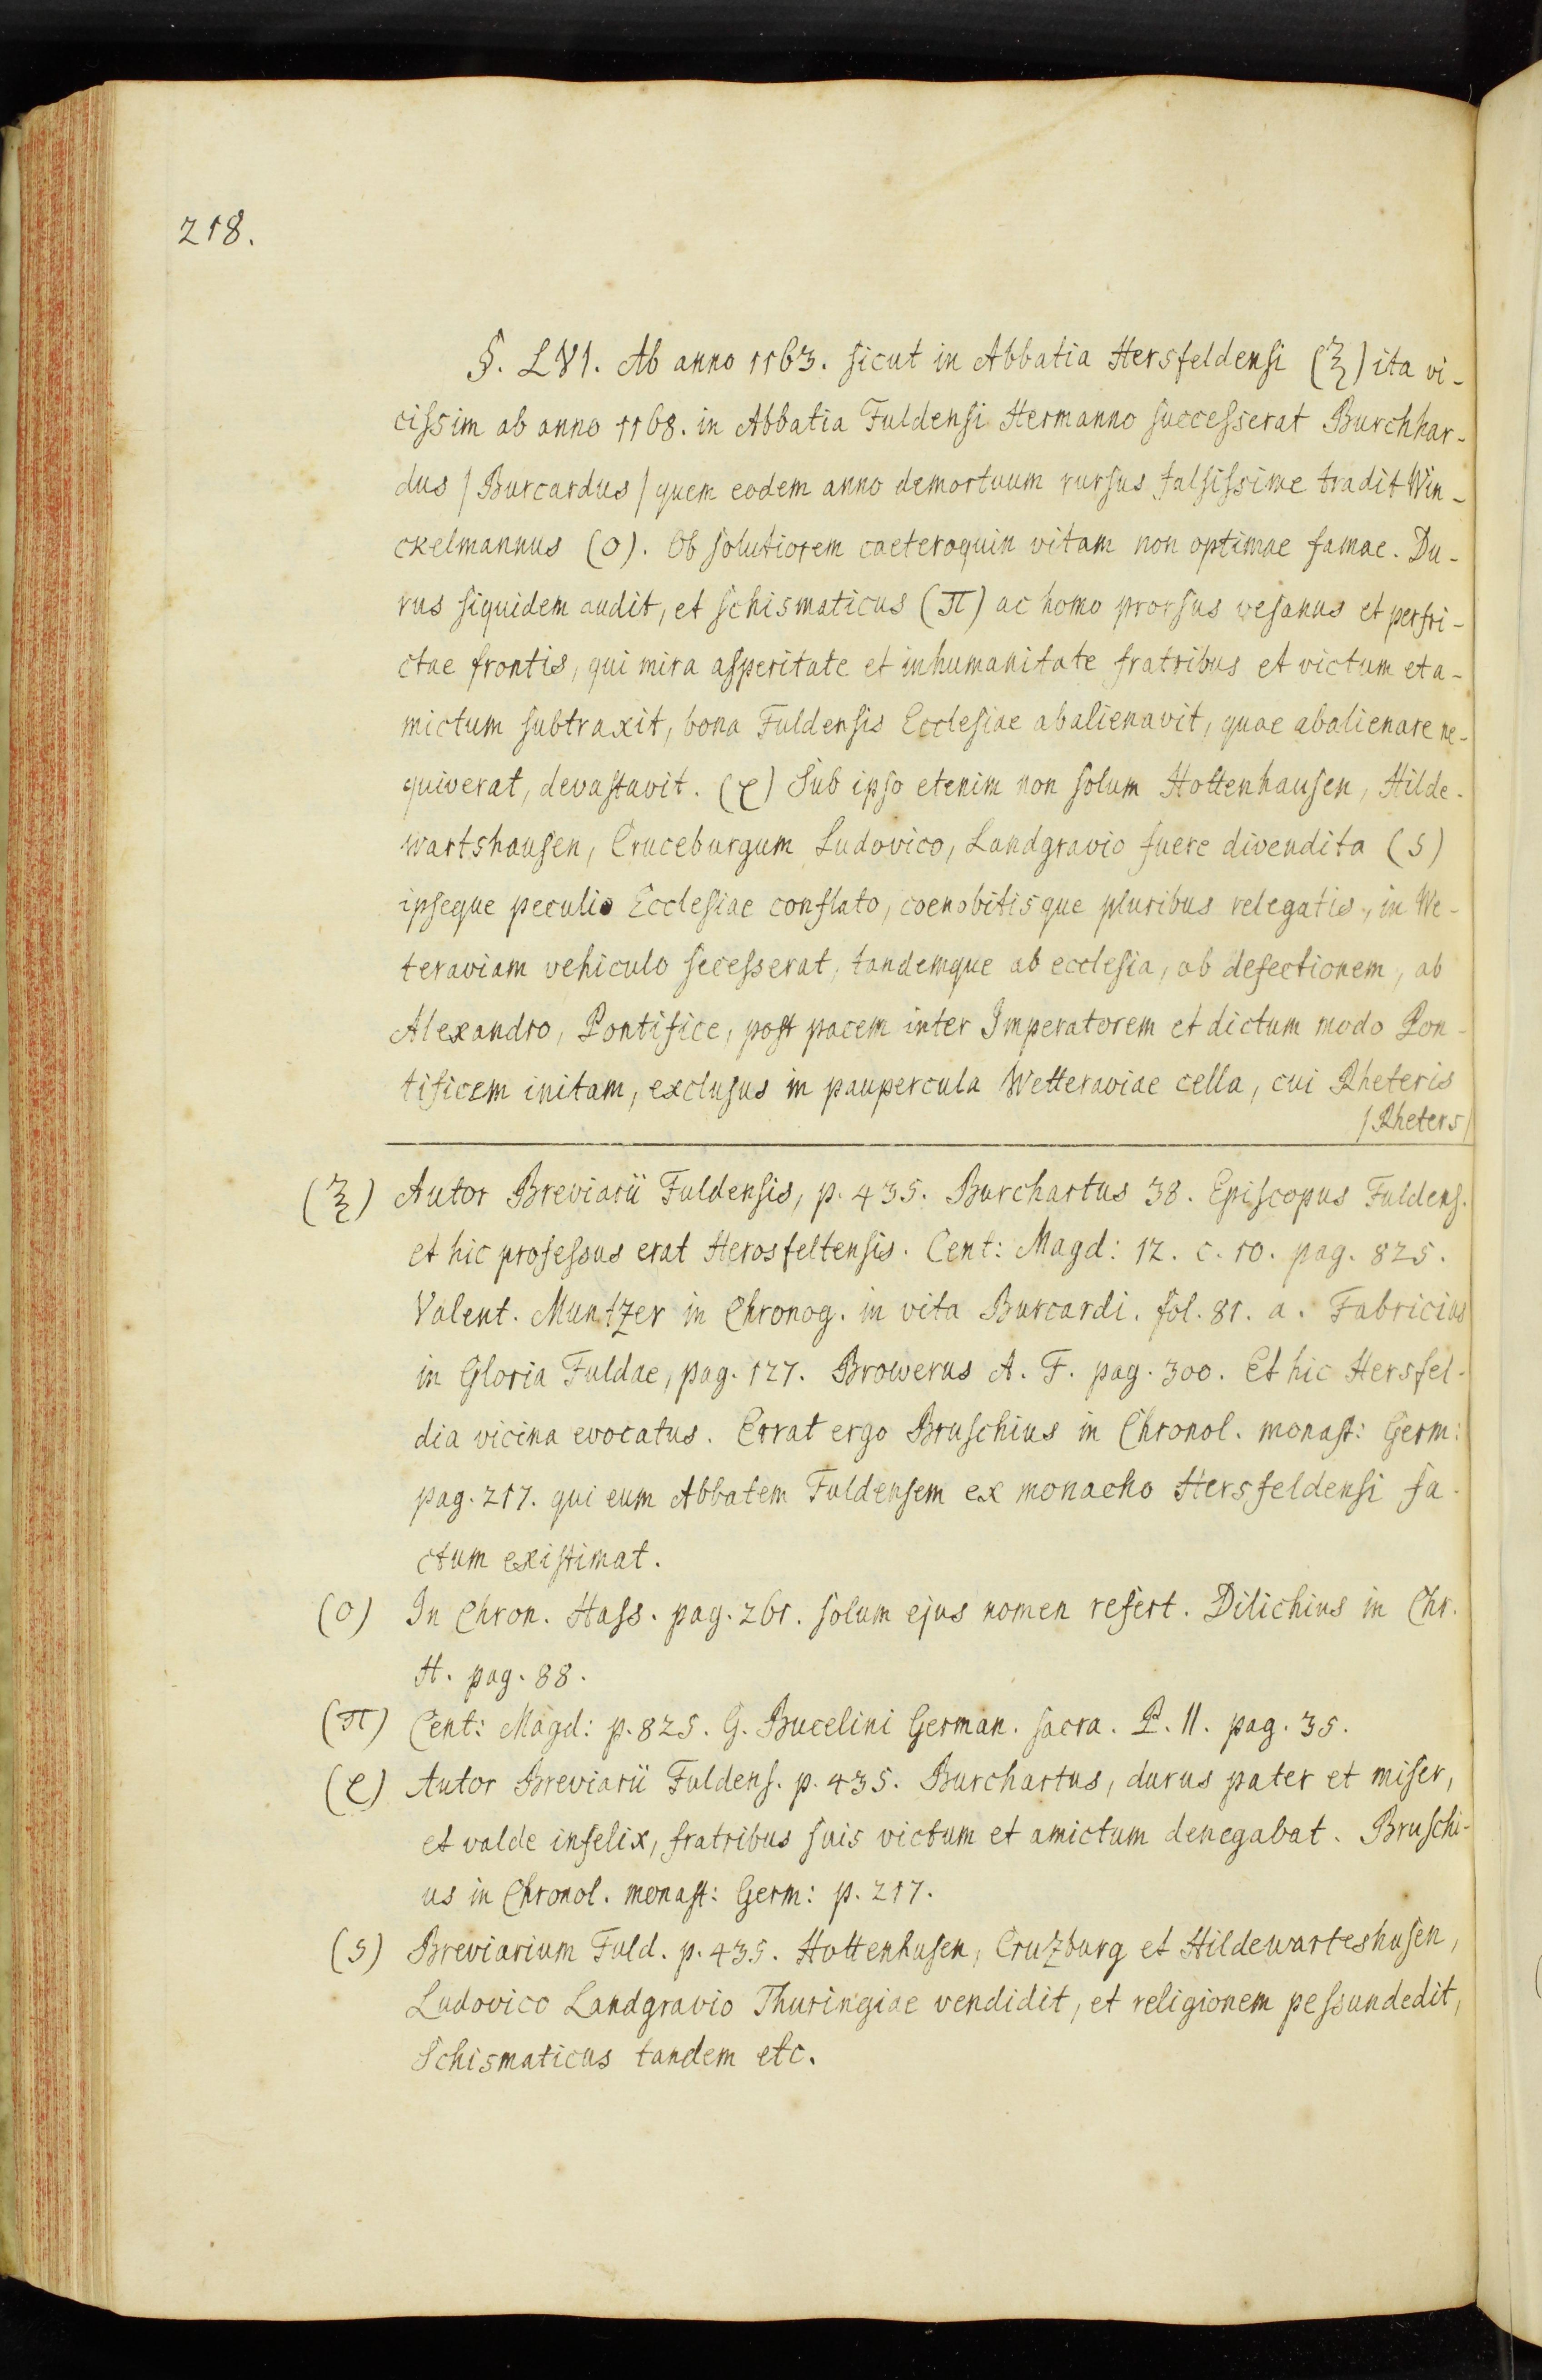 218.
§. LVI. Ab anno 1163. sicut in Abbatia Hersfeldensi (ξ) ita vi-
cissim ab anno 1168. in Abbatia Fuldensi Hermanno successerat Burchhar-
dus / Burcardus / quem eodem anno demortuum rursus falsissime tradit Win-
ckelmannus (ο). Ob solutiorem caeteroquin vitam non optimae famae. Du-
rus siquidem audit, et schismaticus (π) ac homo prorsus vesanus et perfri-
ctae frontis, qui mira asperitate et inhumanitate fratribus et victum et a-
mictum subtraxit, bona Fuldensis Ecclesiae abalienavit, quae abalienare ne-
quiverat, devastavit. (ρ) Sub ipso etenim non solum Hottenhausen, Hilde-
wartshausen, Cruceburgum Ludovico, Landgravio fuere divendita (ς)
ipseque peculio Ecclesiae conflato, coenobitisque pluribus relegatis, in We-
teraviam vehiculo secesserat, tandemque ab ecclesia, ob defectionem, ab
Alexandro, Pontifice, post pacem inter Imperatorem et dictum modo Pon-
tificem initam, exclusus in paupercula Wetteraviae cella, cui Rheteris
/ Rheters /
(ξ) Autor Breviarii Fuldensis, p. 435. Burchartus 38. Episcopus Fuldens.
et hic professus erat Herosfeltensis. Cent: Magd: 12. c. 10. pag. 825.
Valent. Muntzer in Chronog. in vita Burcardi. fol. 81. a. Fabricius
in Gloria Fuldae, pag. 127. Browerus A. F. pag. 300. Et hic Hersfel-
dia vicina evocatus. Errat ergo Bruschius in Chronol. monast: Germ:
pag. 217. qui eum Abbatem Fuldensem ex monacho Hersfeldensi fa-
ctum existimat.
(ο) In Chron. Hass. pag. 261. solum ejus nomen refert. Dilichius in Chr.
H. pag. 88.
(π) Cent: Magd: p. 825. G. Bucelini German. sacra. P. II. pag. 35.
(ρ) Autor Breviarii Fuldens. p. 435. Burchartus, durus pater et miser,
et valde infelix, fratribus suis victum et amictum denegabat. Bruschi-
us in Chronol. monast: Germ: p. 217.
(ς) Breviarium Fuld. p. 435. Hottenhusen, Cruzburg et Hildewarteshusen,
Ludovico Landgravio Thuringiae vendidit, et religionem pessundedit,
Schismaticus tandem etc.